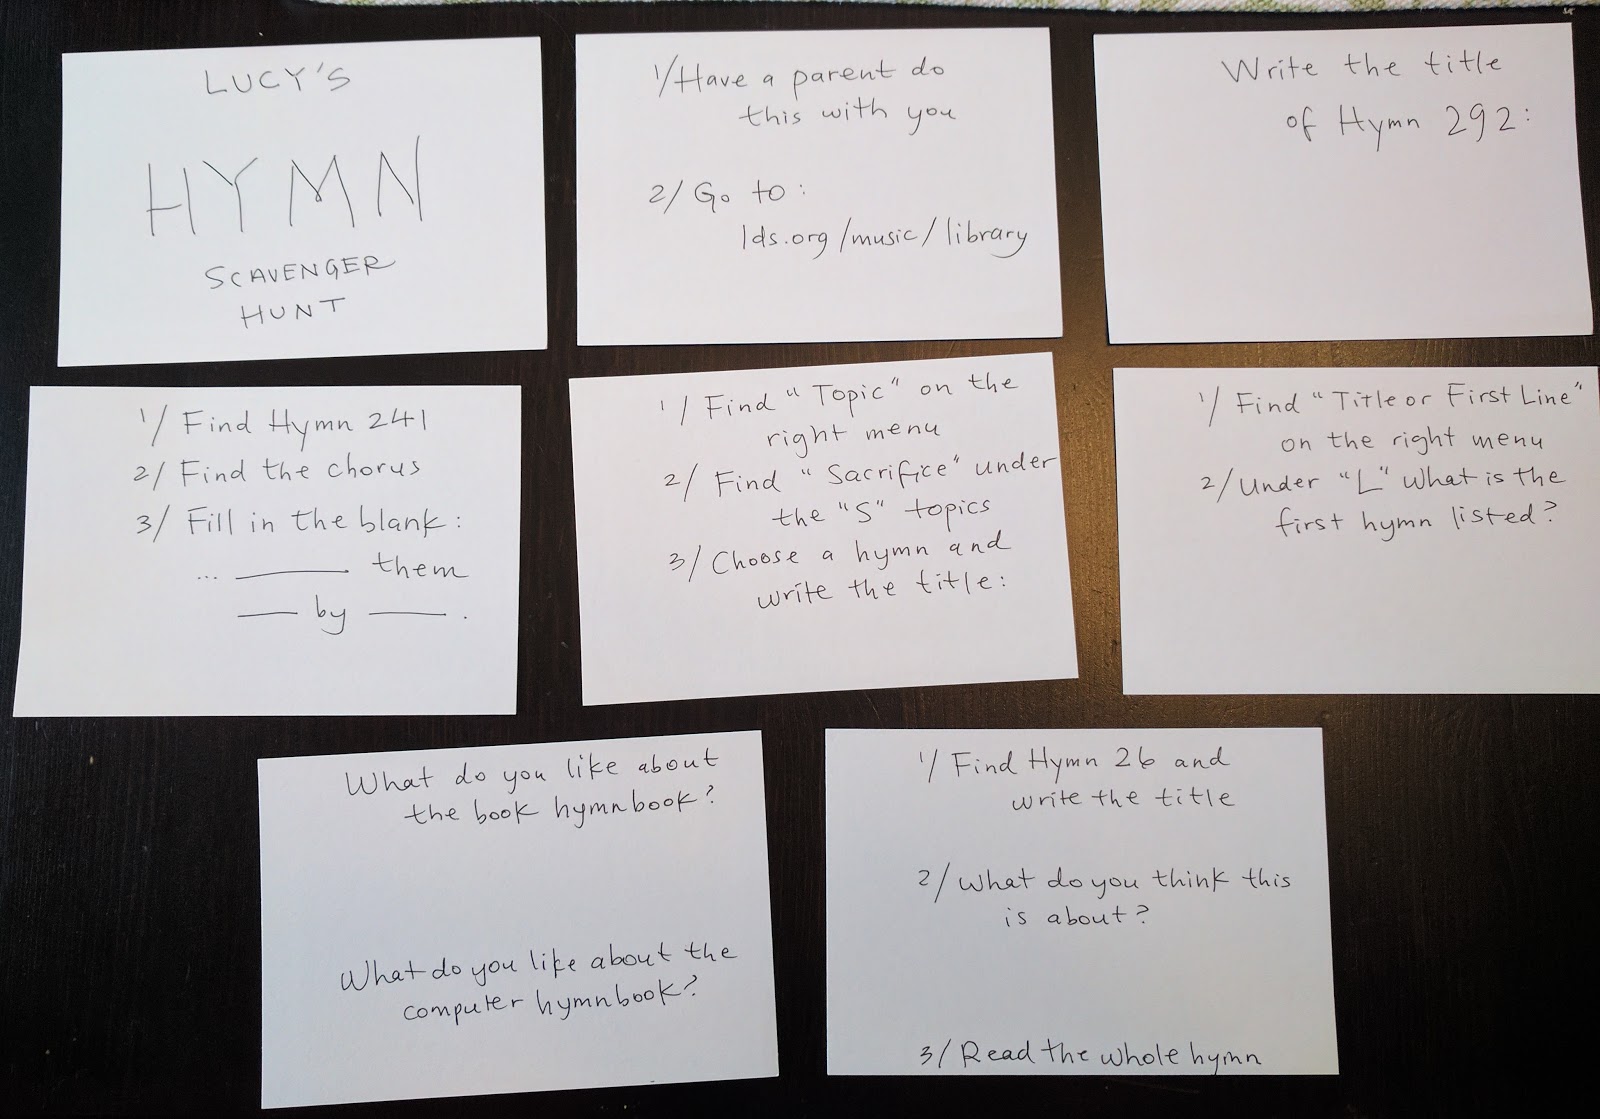 LUCY'S
HYMN
SCAVENGER
HUNT
1/ Have a parent do
this with you
2/ Go to:
lds.org/music/library
Write the title
of Hymn 292:
1/ Find Hymn 241
2/ Find the chorus
3/ Fill in the blank:
... ______ them
___ by ____.
1/ Find "Topic" on the
right menu
2/ Find "Sacrifice" under
the "S" topics
3/ Choose a hymn and
write the title:
1/ Find "Title or First Line"
on the right menu
2/ Under "L" What is the
first hymn listed?
What do you like about
the book hymnbook?
What do you like about the
computer hymnbook?
1/ Find Hymn 26 and
write the title
2/ What do you think this
is about?
3/ Read the whole hymn